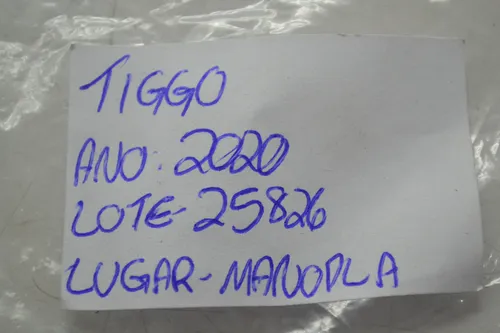 TIGGO
ANO: 2020
LOTE-25826
LUGAR-MANOPLA